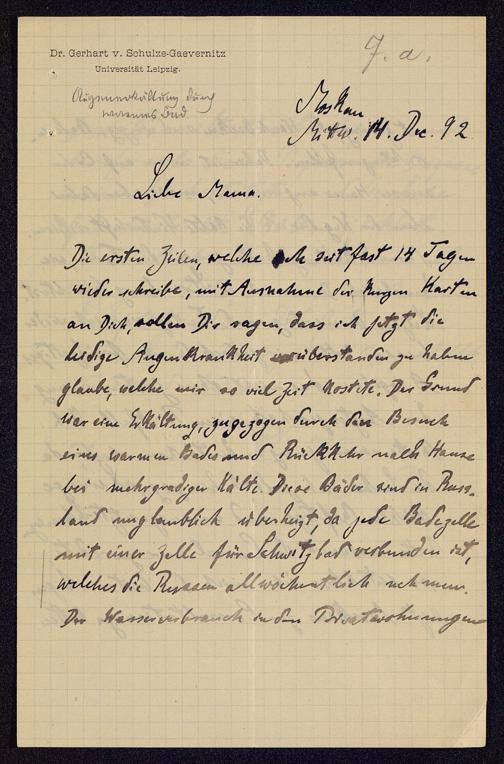 Dr. Gerhart v. Schulze-Gaevernitz
Universität Leipzig.
7. a.
Augenerkältung durch
warmes Bad.
Moskau
Mittw. 14. Dec. 92.
Liebe Mama.
Die ersten Zeilen, welche ich seit fast 14 Tagen
wieder schreibe, mit Ausnahme der kurzen Karten
an Dich, sollen Dir sagen, dass ich jetzt die
leidige Augenkrankheit überstanden zu haben
glaube, welche mir so viel Zeit kostete. Der Grund
war eine Erkältung, zugezogen durch den Besuch
eines warmen Bades und Rückkehr nach Hause
bei mehrgradiger Kälte. Diese Bäder sind in Russ-
land unglaublich überheizt, da jede Badezelle
mit einer Zelle für Schwitzbad verbunden ist,
welches die Russen allwöchentlich nehmen.
Der Wasserverbrauch in den Privatwohnungen